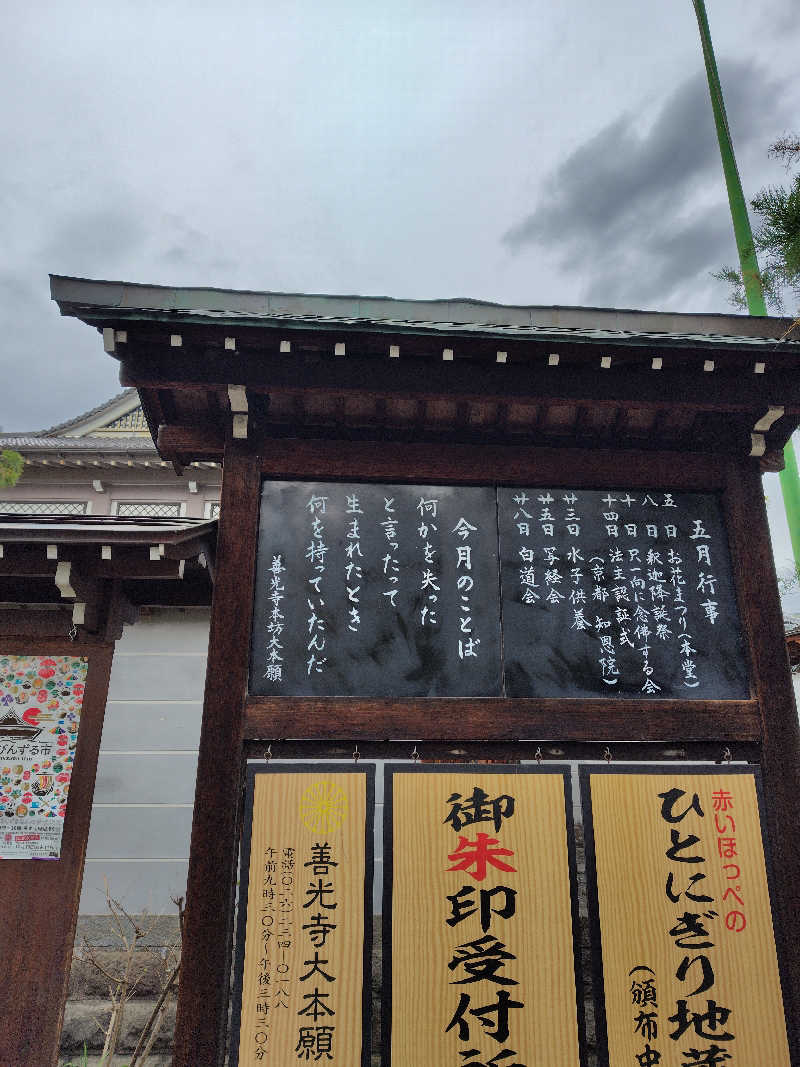 五月行事
五日 お花まつり(本堂)
八日 釈迦降誕祭
十日 只一向に念佛する会
十四日 法主認証式
(京都 知恩院)
廿三日 水子供養
廿五日 写経会
廿八日 白道会
今月のことば
何かを失った
と言ったって
生まれたとき
何を持っていたんだ
善光寺本坊大本願
赤いほっぺの
ひとにぎり地蔵
(頒布中
御朱印受付所
善光寺大本願
電話(〇二六)二三四-〇一八八
午前九時三〇分~午後三時三〇分
びんずる市